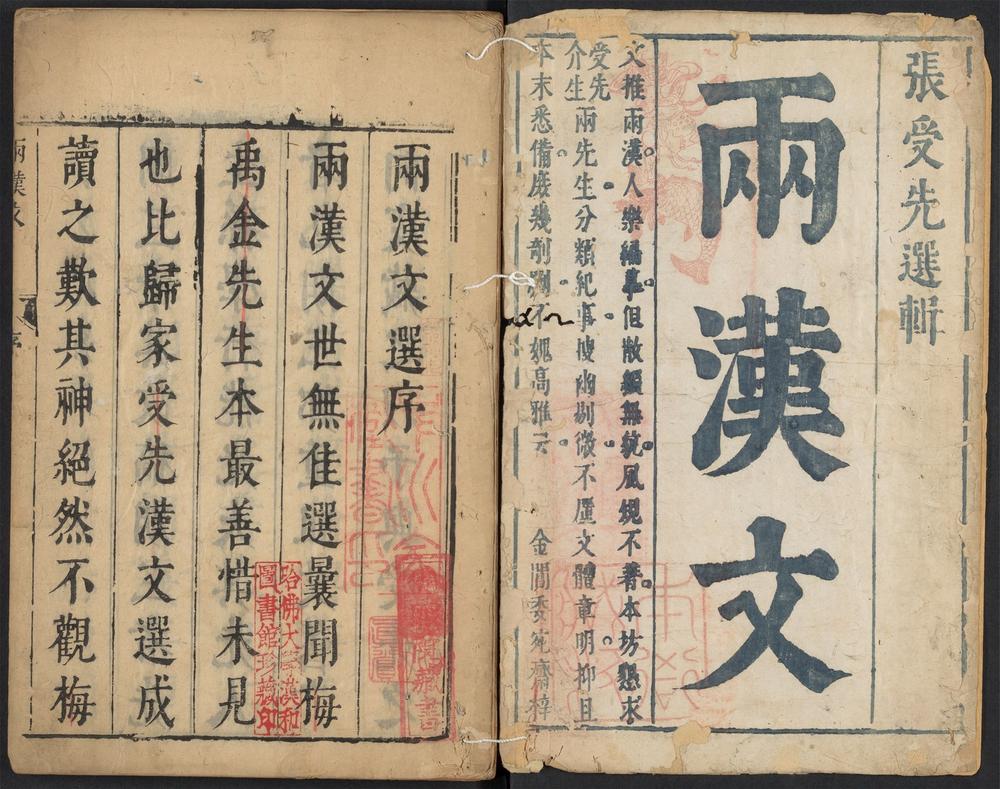 張受先選輯
兩漢文
文推兩漢人樂編摹但散綴無統風規不著本坊懇求
受先
介生兩先生分類紀事搜幽剔微不廑文體章明抑且
本末悉備庶幾剞劂不媿高雅云 金閶委宛齋梓
兩漢文選序
兩漢文世無佳選曩聞梅
禹金先生本最善惜未見
也比歸家受先漢文選成
讀之歎其神絕然不觀梅
兩漢文
序
哈佛大學漢和
圖書館珍藏印
藏書